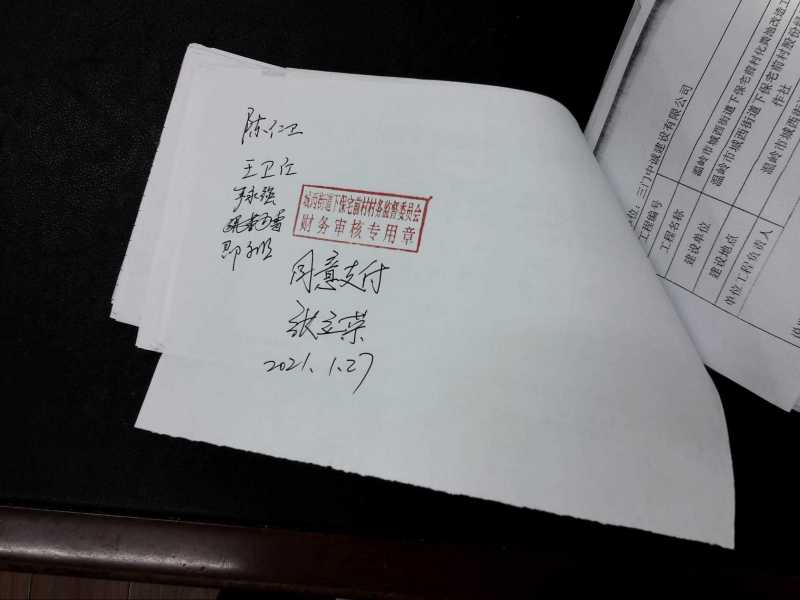 陈仁卫
王卫兵
李永强
同意支付
张立荣
2021.1.27
城西街道下保宅前村村务监督委员会
财务审核专用章
单位：三门中诚建设有限公司
工程编号
工程名称
温岭市城西街道下保宅前村化粪池改造工
建设单位
温岭市城西街道下保宅前村股份经
作社
建设地点
温岭市城西街
单位工程负责人